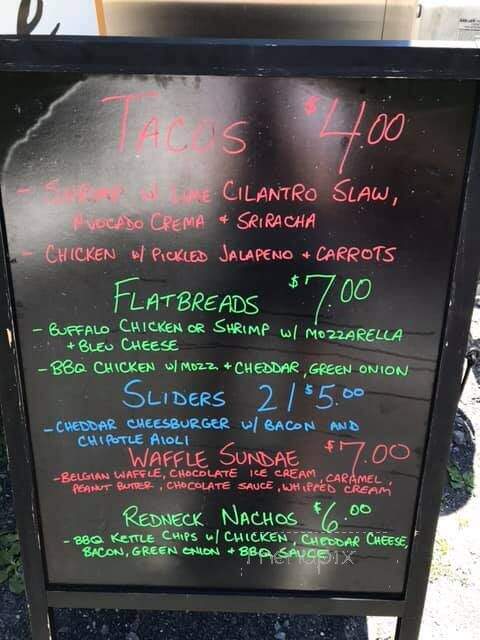 TACOS $4.00
- SHRIMP w/ LIME CILANTRO SLAW,
AVOCADO CREMA + SRIRACHA
- CHICKEN w/ PICKLED JALAPENO + CARROTS
FLATBREADS $7.00
- BUFFALO CHICKEN OR SHRIMP w/ MOZZARELLA
+ BLEU CHEESE
- BBQ CHICKEN w/ MOZZ. + CHEDDAR, GREEN ONION
SLIDERS 2/$5.00
- CHEDDAR CHEESBURGER w/ BACON AND
CHIPOTLE AIOLI
WAFFLE SUNDAE $7.00
- BELGIAN WAFFLE, CHOCOLATE ICE CREAM, CARAMEL,
PEANUT BUTTER, CHOCOLATE SAUCE, WHIPPED CREAM
REDNECK NACHOS $6.00
- BBQ KETTLE CHIPS w/ CHICKEN, CHEDDAR CHEESE,
BACON, GREEN ONION + BBQ SAUCE
menupix